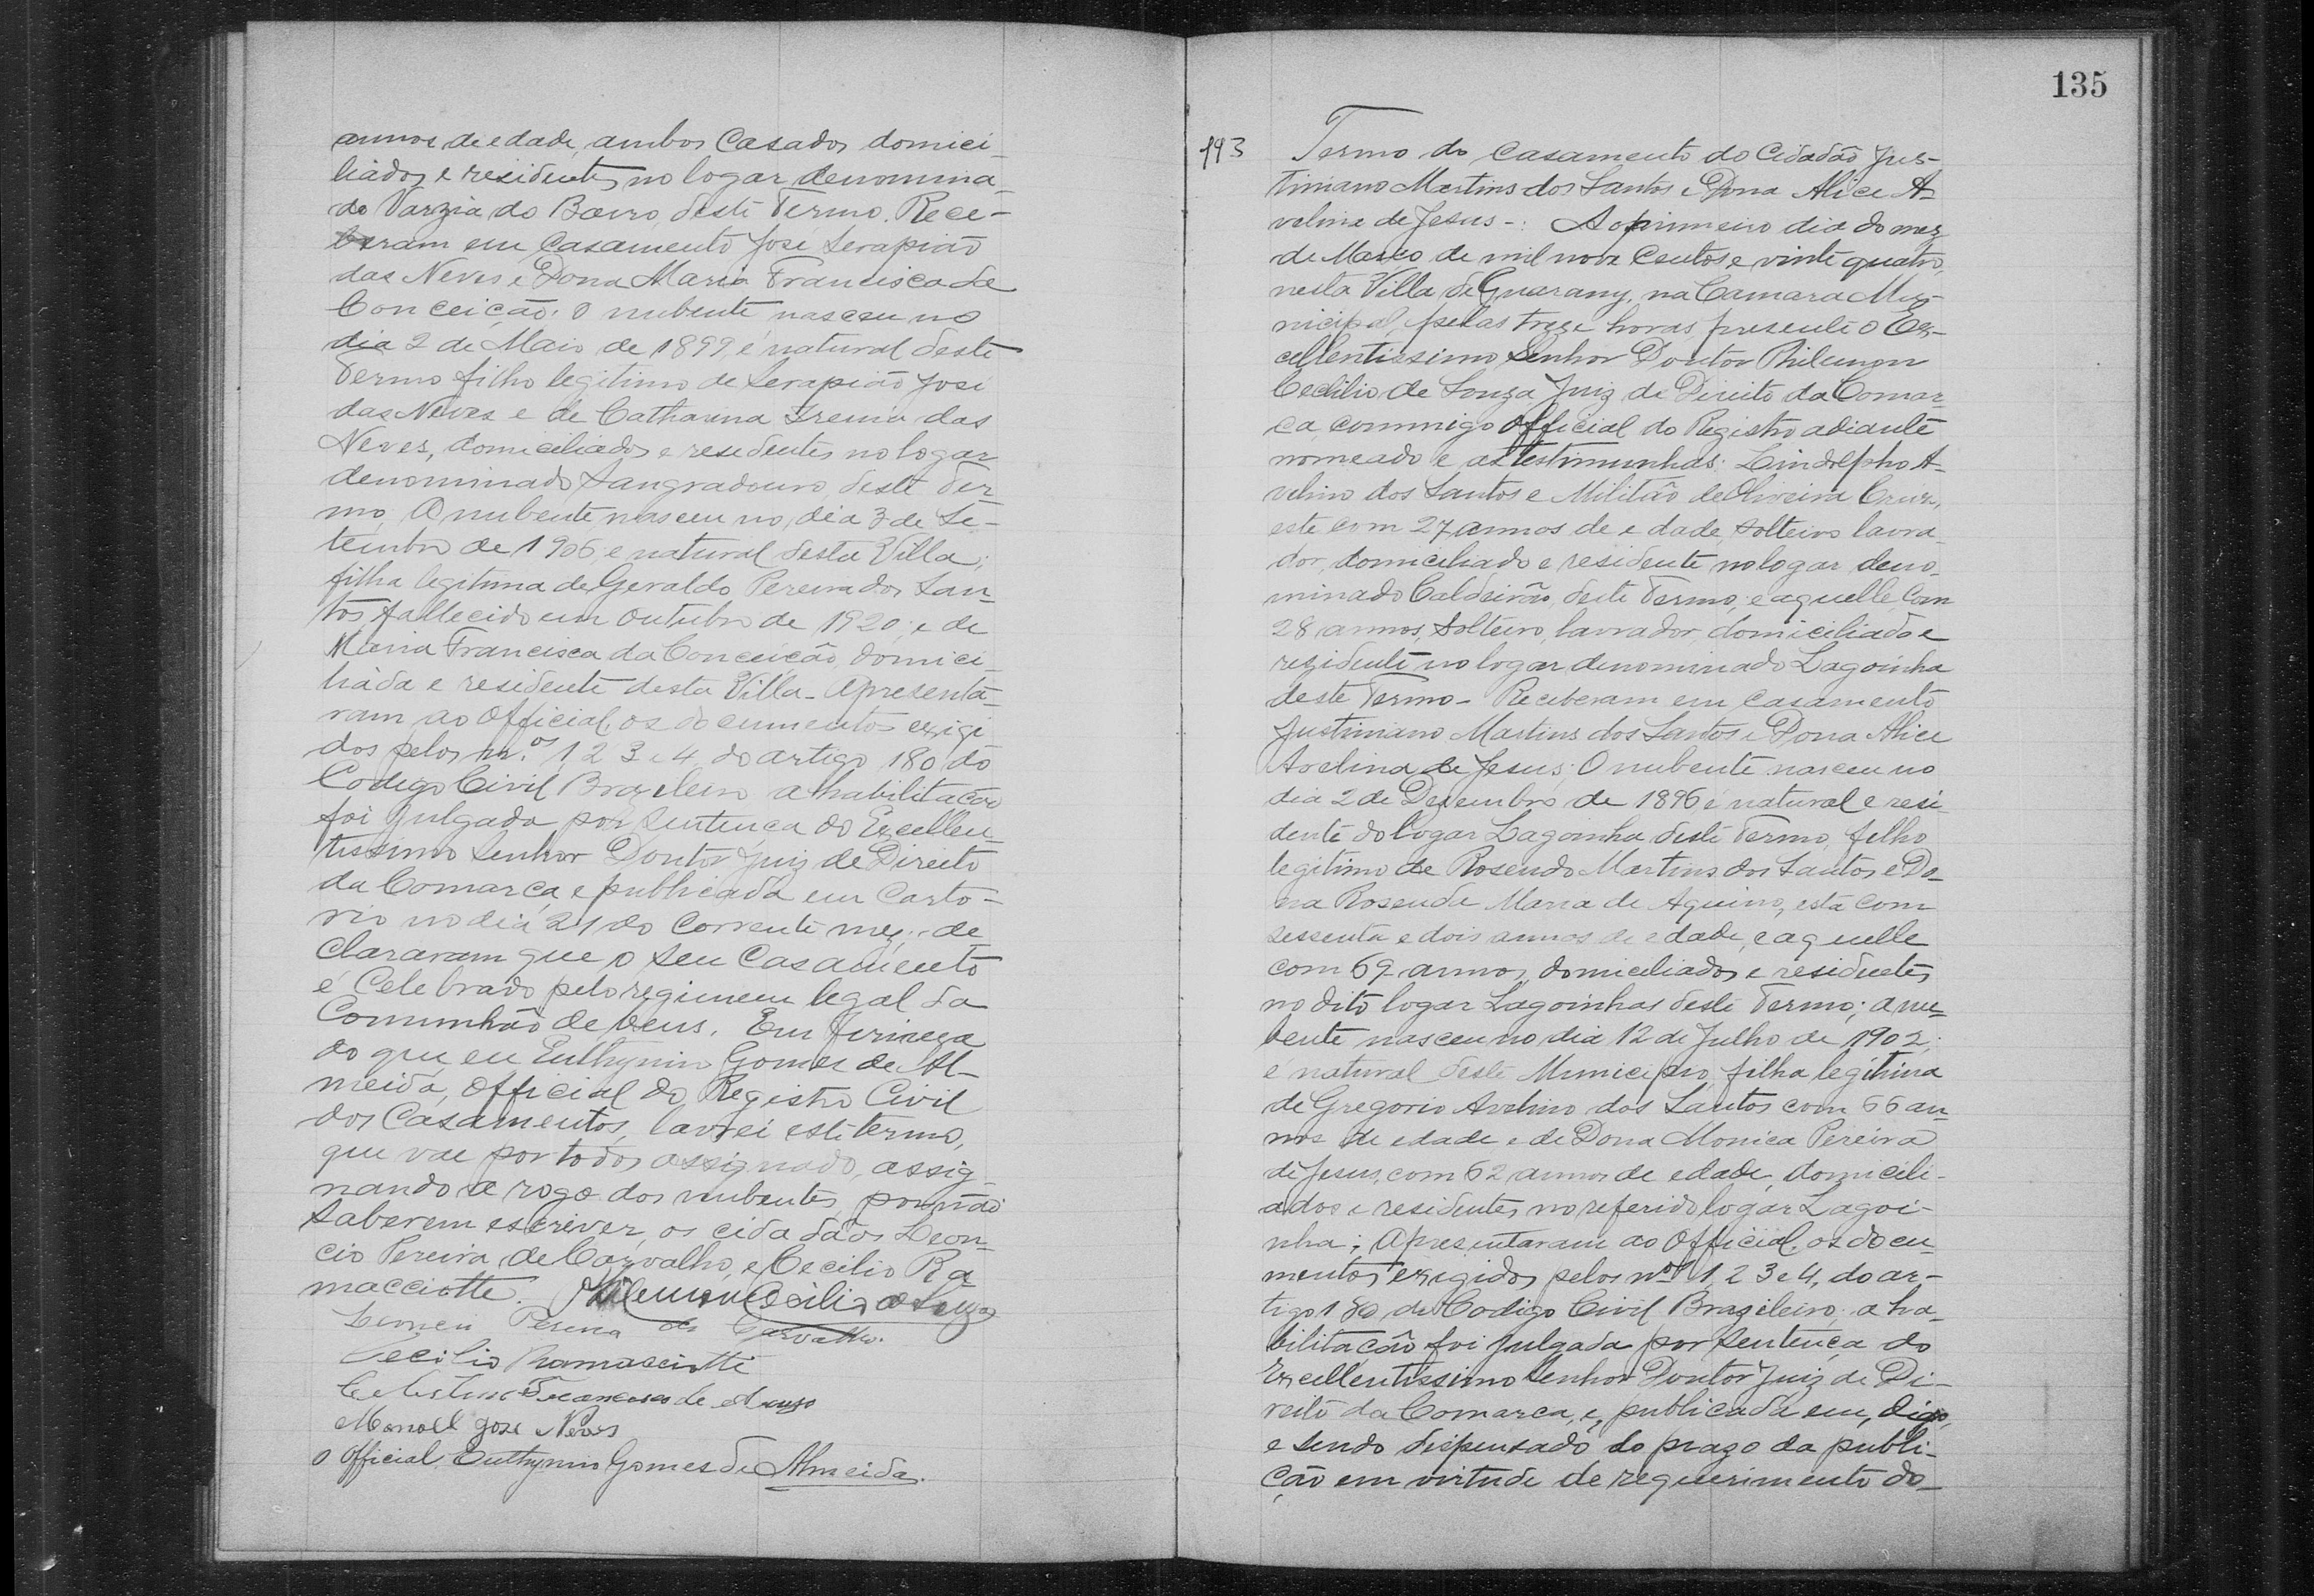 annos de edade, ambos casados domici-
liados e residentes no logar denomina-
do Varzia do Barro deste Termo. Rece-
beram em casamento José Serapião
das Neves e Dona Maria Francisca da
Conceição. O nubente nasceu no
dia 2 de Maio de 1899, é natural deste
Termo filho legitimo de Serapião José
das Neves e de Catharina Irenia das
Neves, domiciliados e residentes no logar
denominado Sangradouro, deste Ter-
mo. A nubente nasceu no dia 3 de Se-
tembro de 1906, e natural desta Villa;
filha legitima de Geraldo Pereira dos San-
tos fallecido em outubro de 1920; e de
Maria Francisca da Conceição, domici-
liada e residente desta Villa - Apresenta-
ram ao Official, os documentos exigi
dos pelos n.os 1 2 3 e 4, do artigo 180 do
Codigo Civil Brazileiro a habilitação
foi julgada por sentença do Excellen-
tissimo Senhor Doutor Juiz de Direito
da Comarca, e publicada em Carto-
rio no dia 21 do corrente mez; de
clararam que o seu casamento
é celebrado pelo regimem legal da
Comunhão de bens. Em firmeza
do que, eu Euthymio Gomes de Al-
meida, Official do Registro Civil
dos Casamentos, lavrei este termo,
que vae por todos assignado, assig-
nando a rogo dos nubentes, por não
saberem escrever, os cidadãos Leon-
cio Pereira de Carvalho, e Cecilio Ra
macciotte. Philemon Cecilio de Souza
Pereira de Carvalho.
Cecilio Ramasciotti
Celestino Francisco de Araujo
Manoel Jose Neves
O Official, Euthymio Gomes de Almeida.
135
193
Termo do casamento do Cidadão Jus-
tiniano Martins dos Santos e Dona Alice A-
velina de Jesus -: Ao primeiro dia do mez
de Março de mil nove centos e vinte quatro,
nesta Villa de Guarany, na Camara Mu-
nicipal, pelas treze horas, presente o Ex-
cellentissimo Senhor Doutor Philemon
Cecilio de Souza Juiz de Direito da Comar-
ca, commigo Official do Registro adiante
nomeado e as testimunhas: Lindolpho A-
velino dos Santos e Militão de Oliveira Cruz,
este com 27 annos de edade, solteiro lavra-
dor, domiciliado e residente no logar deno-
minado Caldeirão, deste Termo; e aquelle, com
28 annos, solteiro, lavrador, domiciliado e
rezidente no logar denominado Lagoinha
deste Termo - Receberam em casamento
Justiniano Martins dos Santos e Dona Alice
Avelina de Jesus; O nubente nasceu no
dia 2 de Dezembro de 1896 é natural e resi-
dente do logar Lagoinha deste Termo, filho
legitimo de Rosendo Martins dos Santos e Do-
na Rosenda Maria de Aquino, esta com
sessenta e dois annos de edade, e aquelle
com 69 annos, domiciliados e residentes,
no dito logar Lagoinhas deste Termo; a nu-
bente nasceu no dia 12 de Julho de 1902;
é natural deste Municipio, filha legitima
de Gregorio Avelino dos Santos com 66 an-
nos de edade e de Dona Monica Pereira
de Jesus, com 62 annos de edade, domicili-
ados e residentes, no referido logar Lagoi-
nha; Apresentaram ao Official, os docu-
mentos exigidos pelos nos 1, 2 3 e 4, do ar-
tigo 180 do Codigo Civil Brazileiro; a ha-
bilitação foi julgada por sentença do
Excellentissimo Senhor Doutor Juiz de Di-
reito da Comarca, e, publicada em, digo,
e sendo dispensado do prazo da publi-
ção em virtude de requerimento do-